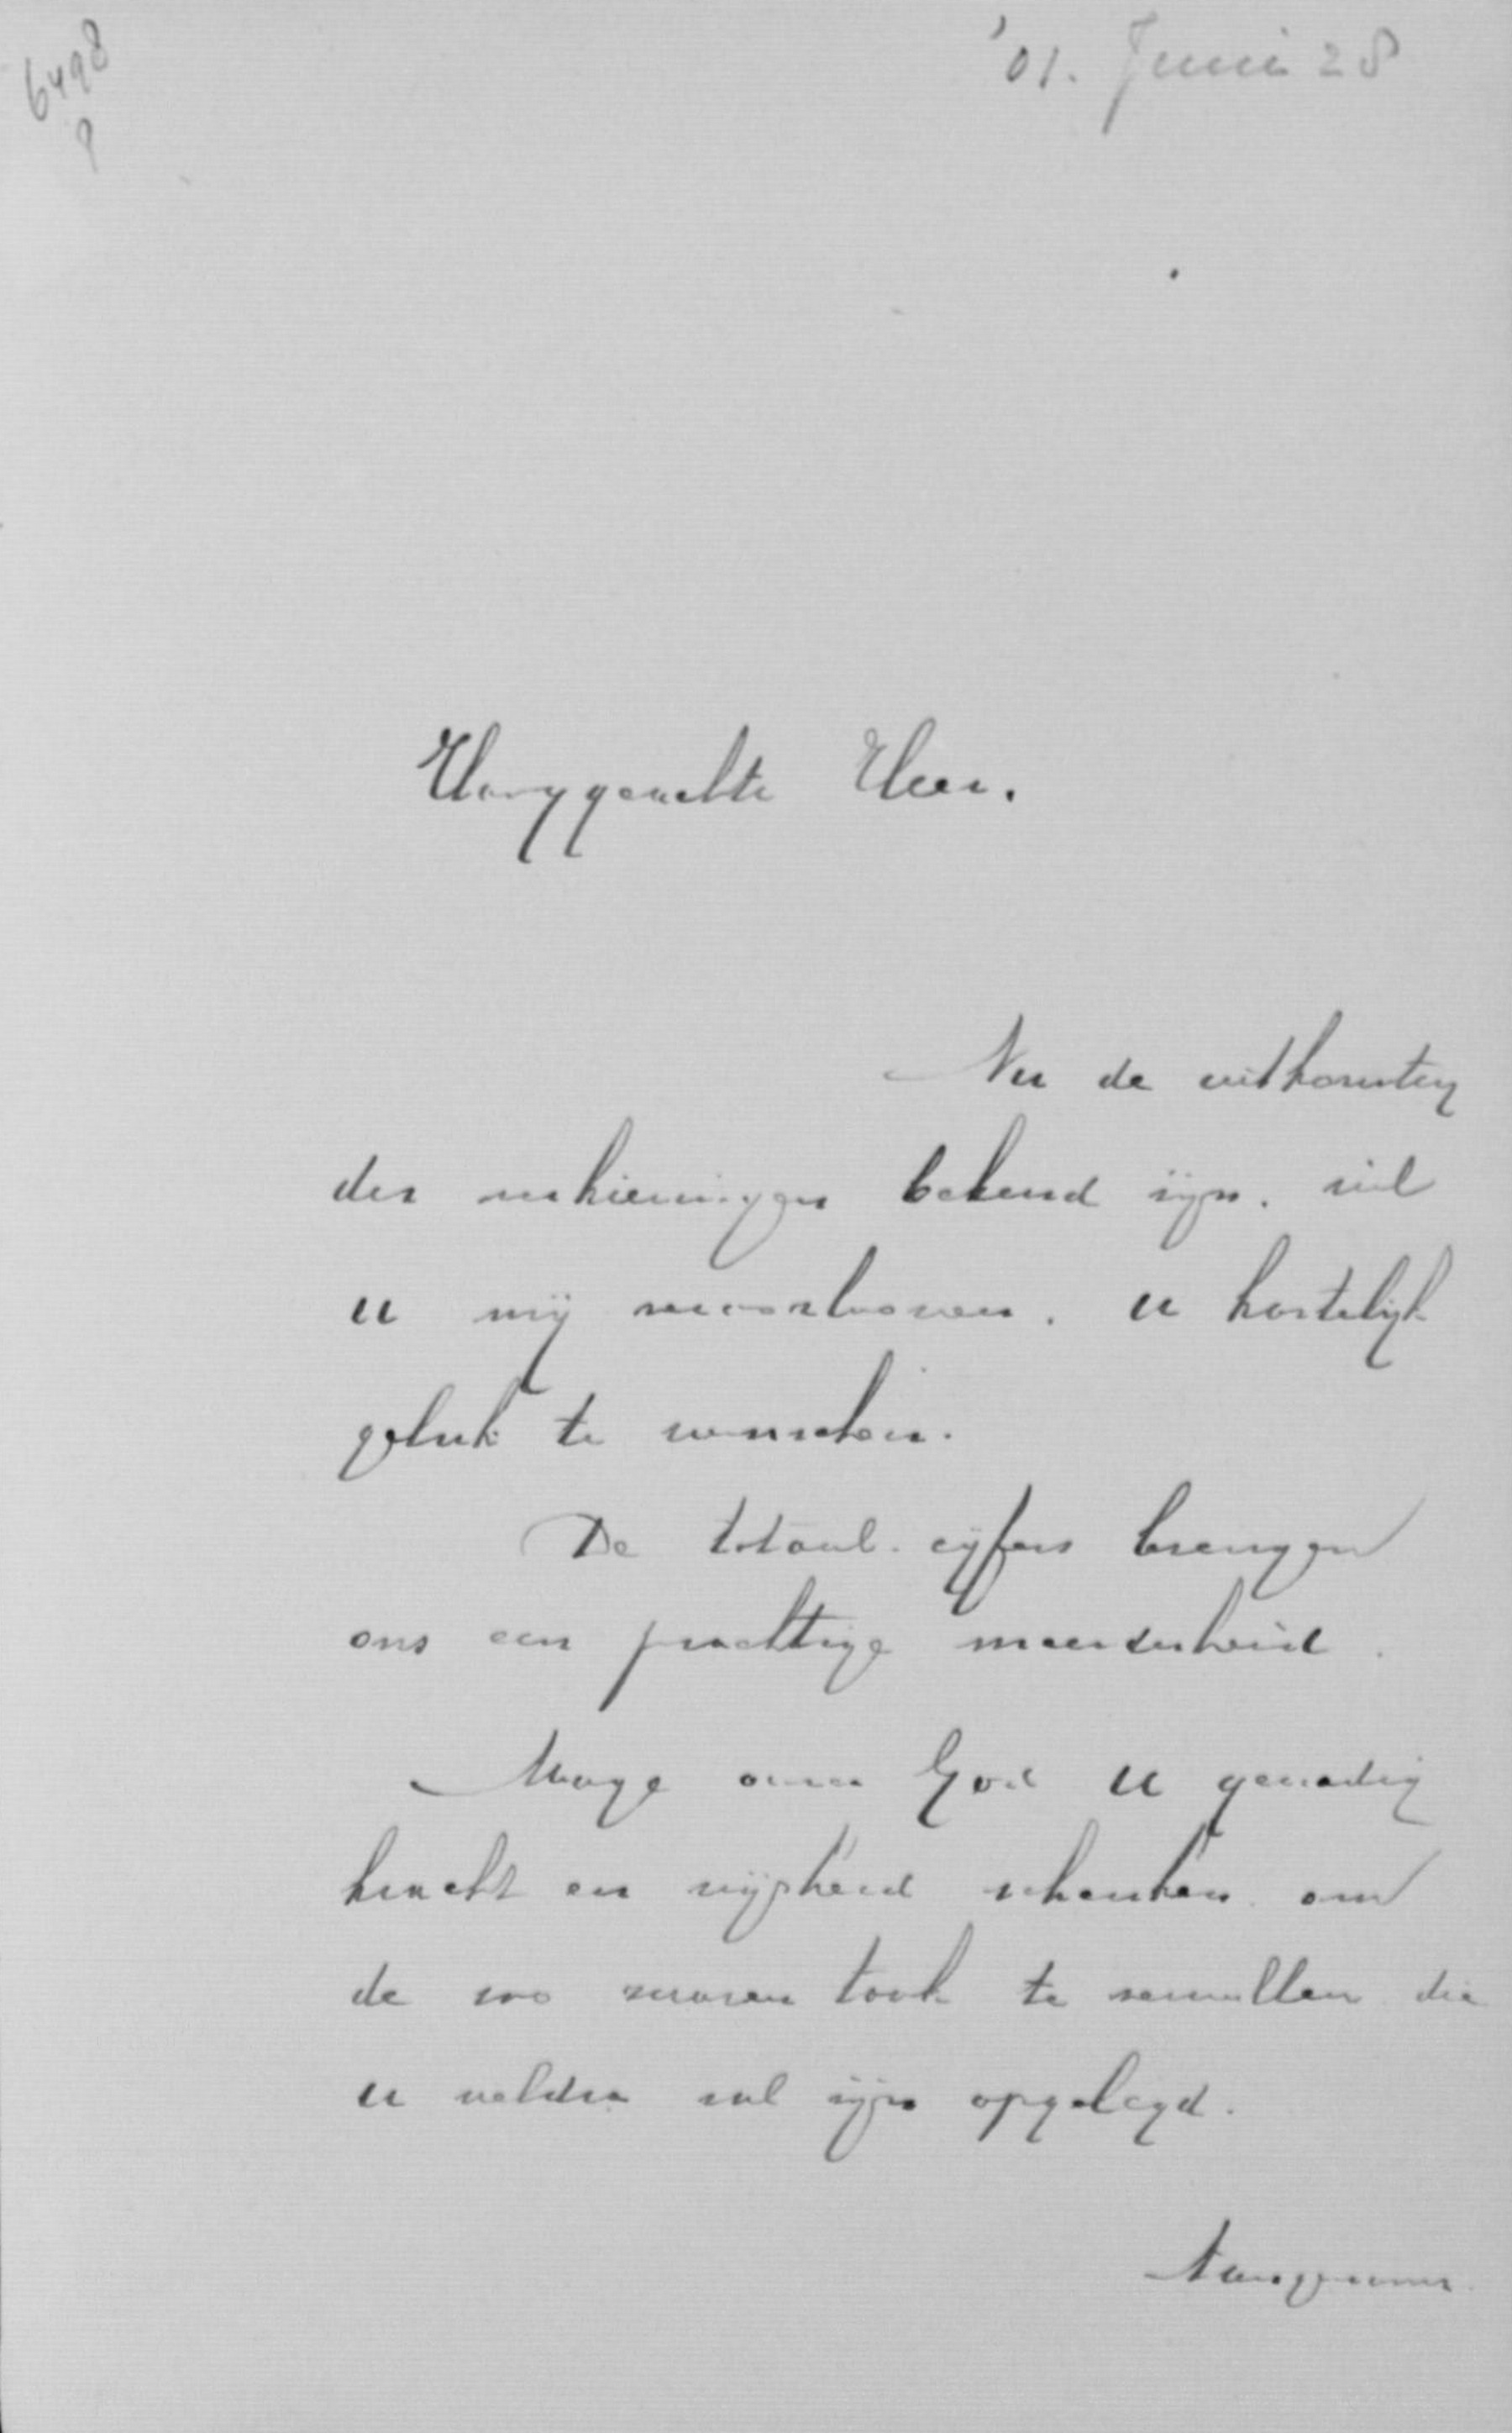 6498
'01. Juni 28
Hooggeachte Heer.
Nu de uitkomsten
der verkiezingen bekend zijn. wil
u mij veroorloven. u hartelijk
geluk te wenschen.
De totaal. cijfers brengen
ons een prachtige meerderheid.
Moge onze God u genadig
kracht en wijsheid schenken om
de zoo zware taak te vervullen die
u weldra zal zijn opgelegd.
Aangenaam